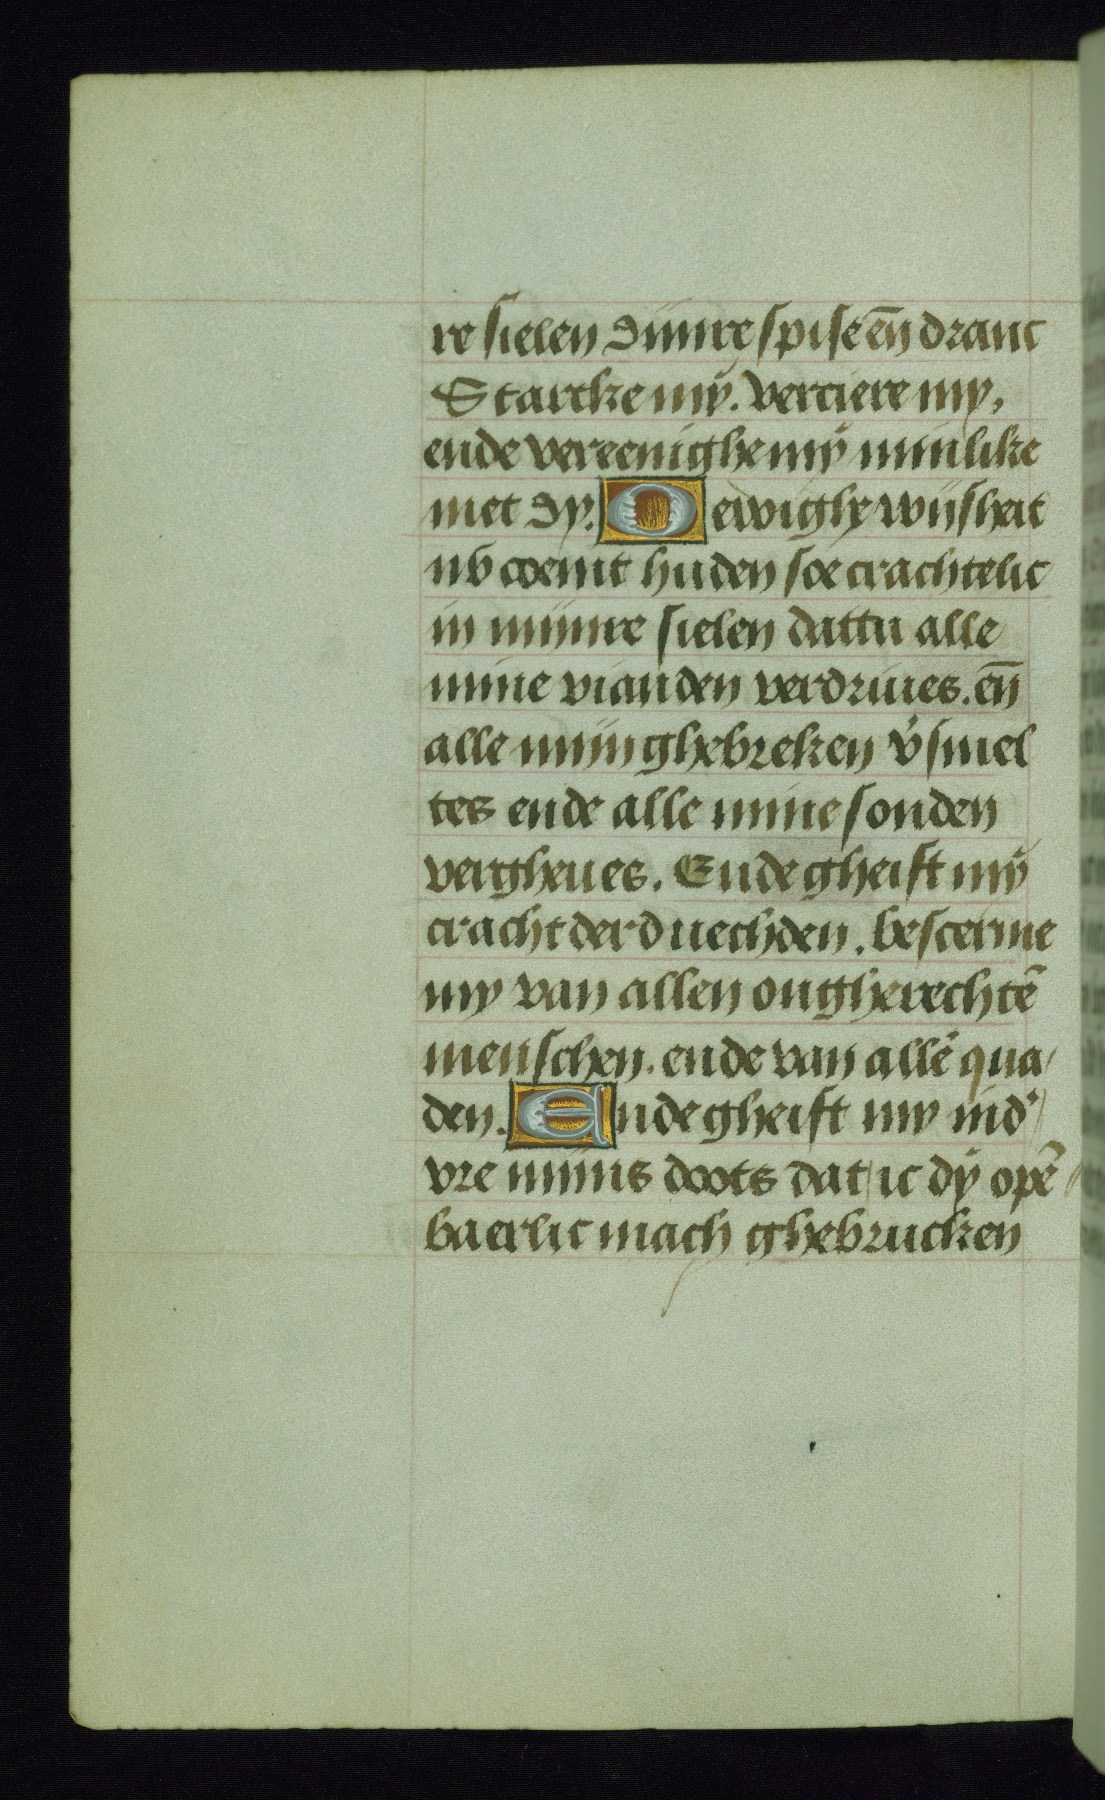 re sielen dijnre spise en̄ dranc
Starcke my. verciere my,
ende vereenighe mÿ minlike
met dy. O ewighe wijsheit
nv coemt huden soe crachtelic
in mijnre sielen dattu alle
mine vianden verdriues. en̄
alle mijn ghebreken v̓smel
tes ende alle mine sonden
vergheues. Ende gheift mÿ
cracht der duechden. bescerme
my van allen ongherechtē
menschen. ende van allē qua
den. Ende gheift my ind̓
vre mijns doots dat ic dÿ opē
baerlic mach ghebrucken